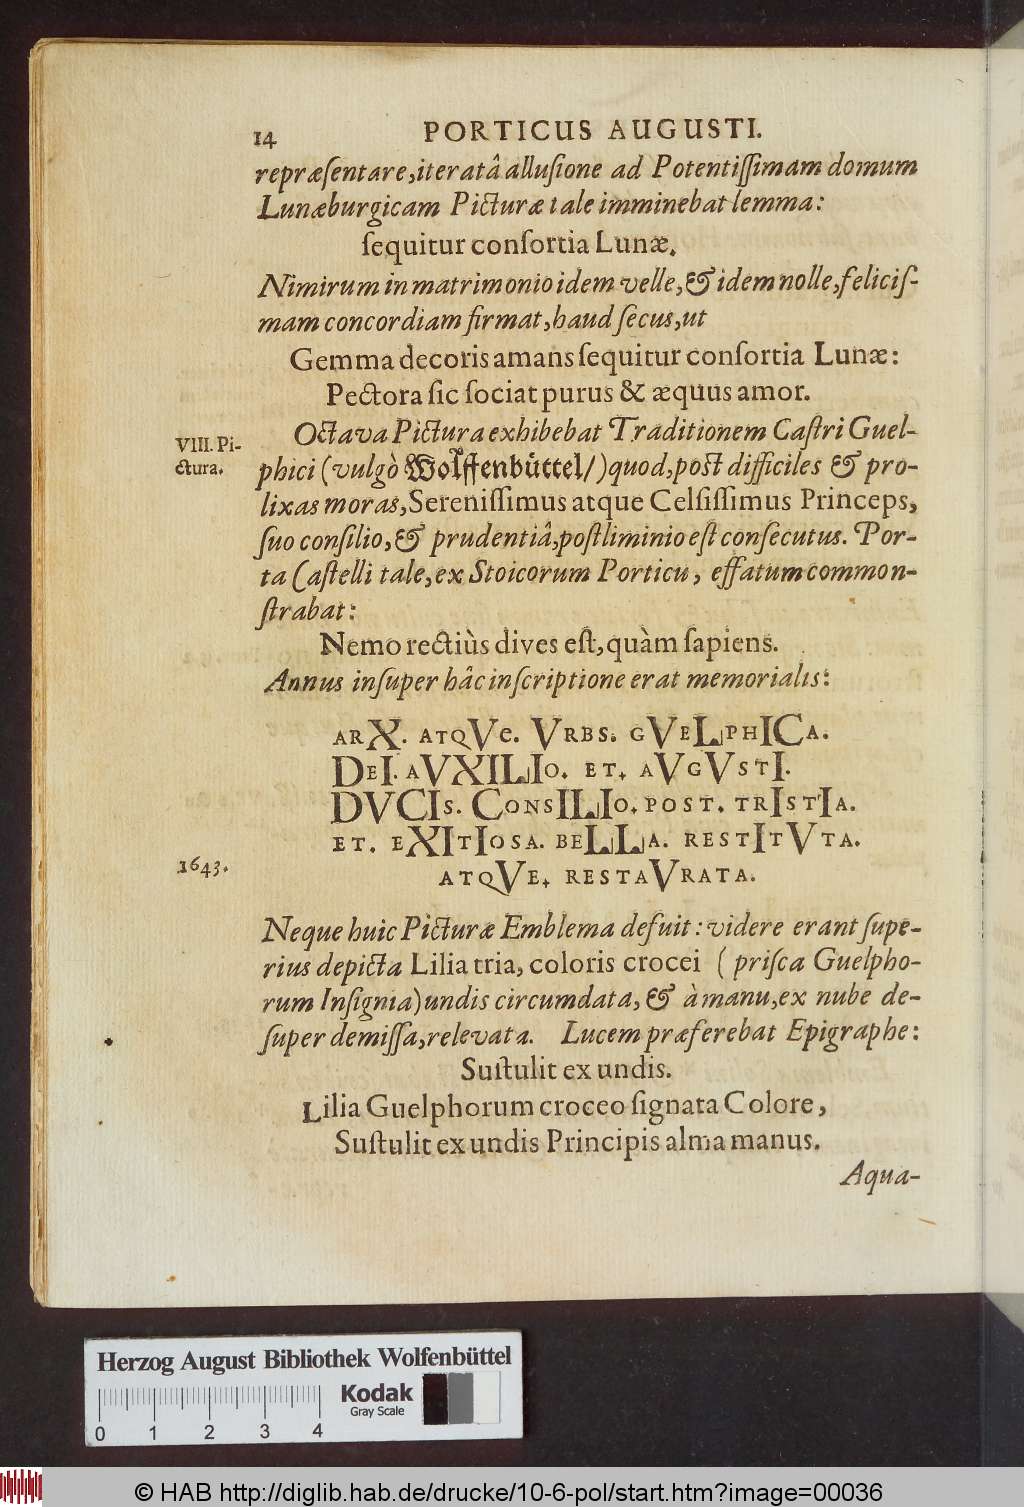 14 PORTICUS AUGUSTI.
repræſentare, iteratâ alluſione ad Potentiſſimam domum
Lunæburgicam Picturæ tale imminebat lemma:
ſequitur conſortia Lunæ.
Nimirum in matrimonio idem velle, & idem nolle, feliciſ-
mam concordiam firmat, haud ſecus, ut
Gemma decoris amans ſequitur conſortia Lunæ:
Pectora ſic ſociat purus & æquus amor.
VIII. Pi-
ctura.
Octava Pictura exhibebat Traditionem Caſtri Guel-
phici (vulgò Wolffenbüttel/) quod, poſt difficiles & pro-
lixas moras, Sereniſſimus atque Celſiſſimus Princeps,
ſuo conſilio, & prudentiâ, poſtliminio eſt conſecutus. Por-
ta Caſtelli tale, ex Stoicorum Porticu, effatum common-
ſtrabat:
Nemo rectiùs dives eſt, quàm ſapiens.
Annus inſuper hâc inſcriptione erat memorialis:
ARX. ATQVE. VRBS. GVELPHICA.
DEI. AVXILIO. ET. AVGVSTI.
DVCIS. CONSILIO. POST. TRISTIA.
ET. EXITIOSA. BELLA. RESTITVTA.
1643.
ATQVE. RESTAVRATA.
Neque huic Picturæ Emblema defuit: videre erant ſupe-
rius depicta Lilia tria, coloris crocei (priſca Guelpho-
rum Inſignia) undis circumdata, & à manu, ex nube de-
ſuper demiſſa, relevata. Lucem præferebat Epigraphe:
Suſtulit ex undis.
Lilia Guelphorum croceo ſignata Colore,
Suſtulit ex undis Principis alma manus.
Aqua-
Herzog August Bibliothek Wolfenbüttel
Kodak
Gray Scale
0 1 2 3 4
© HAB http://diglib.hab.de/drucke/10-6-pol/start.htm?image=00036